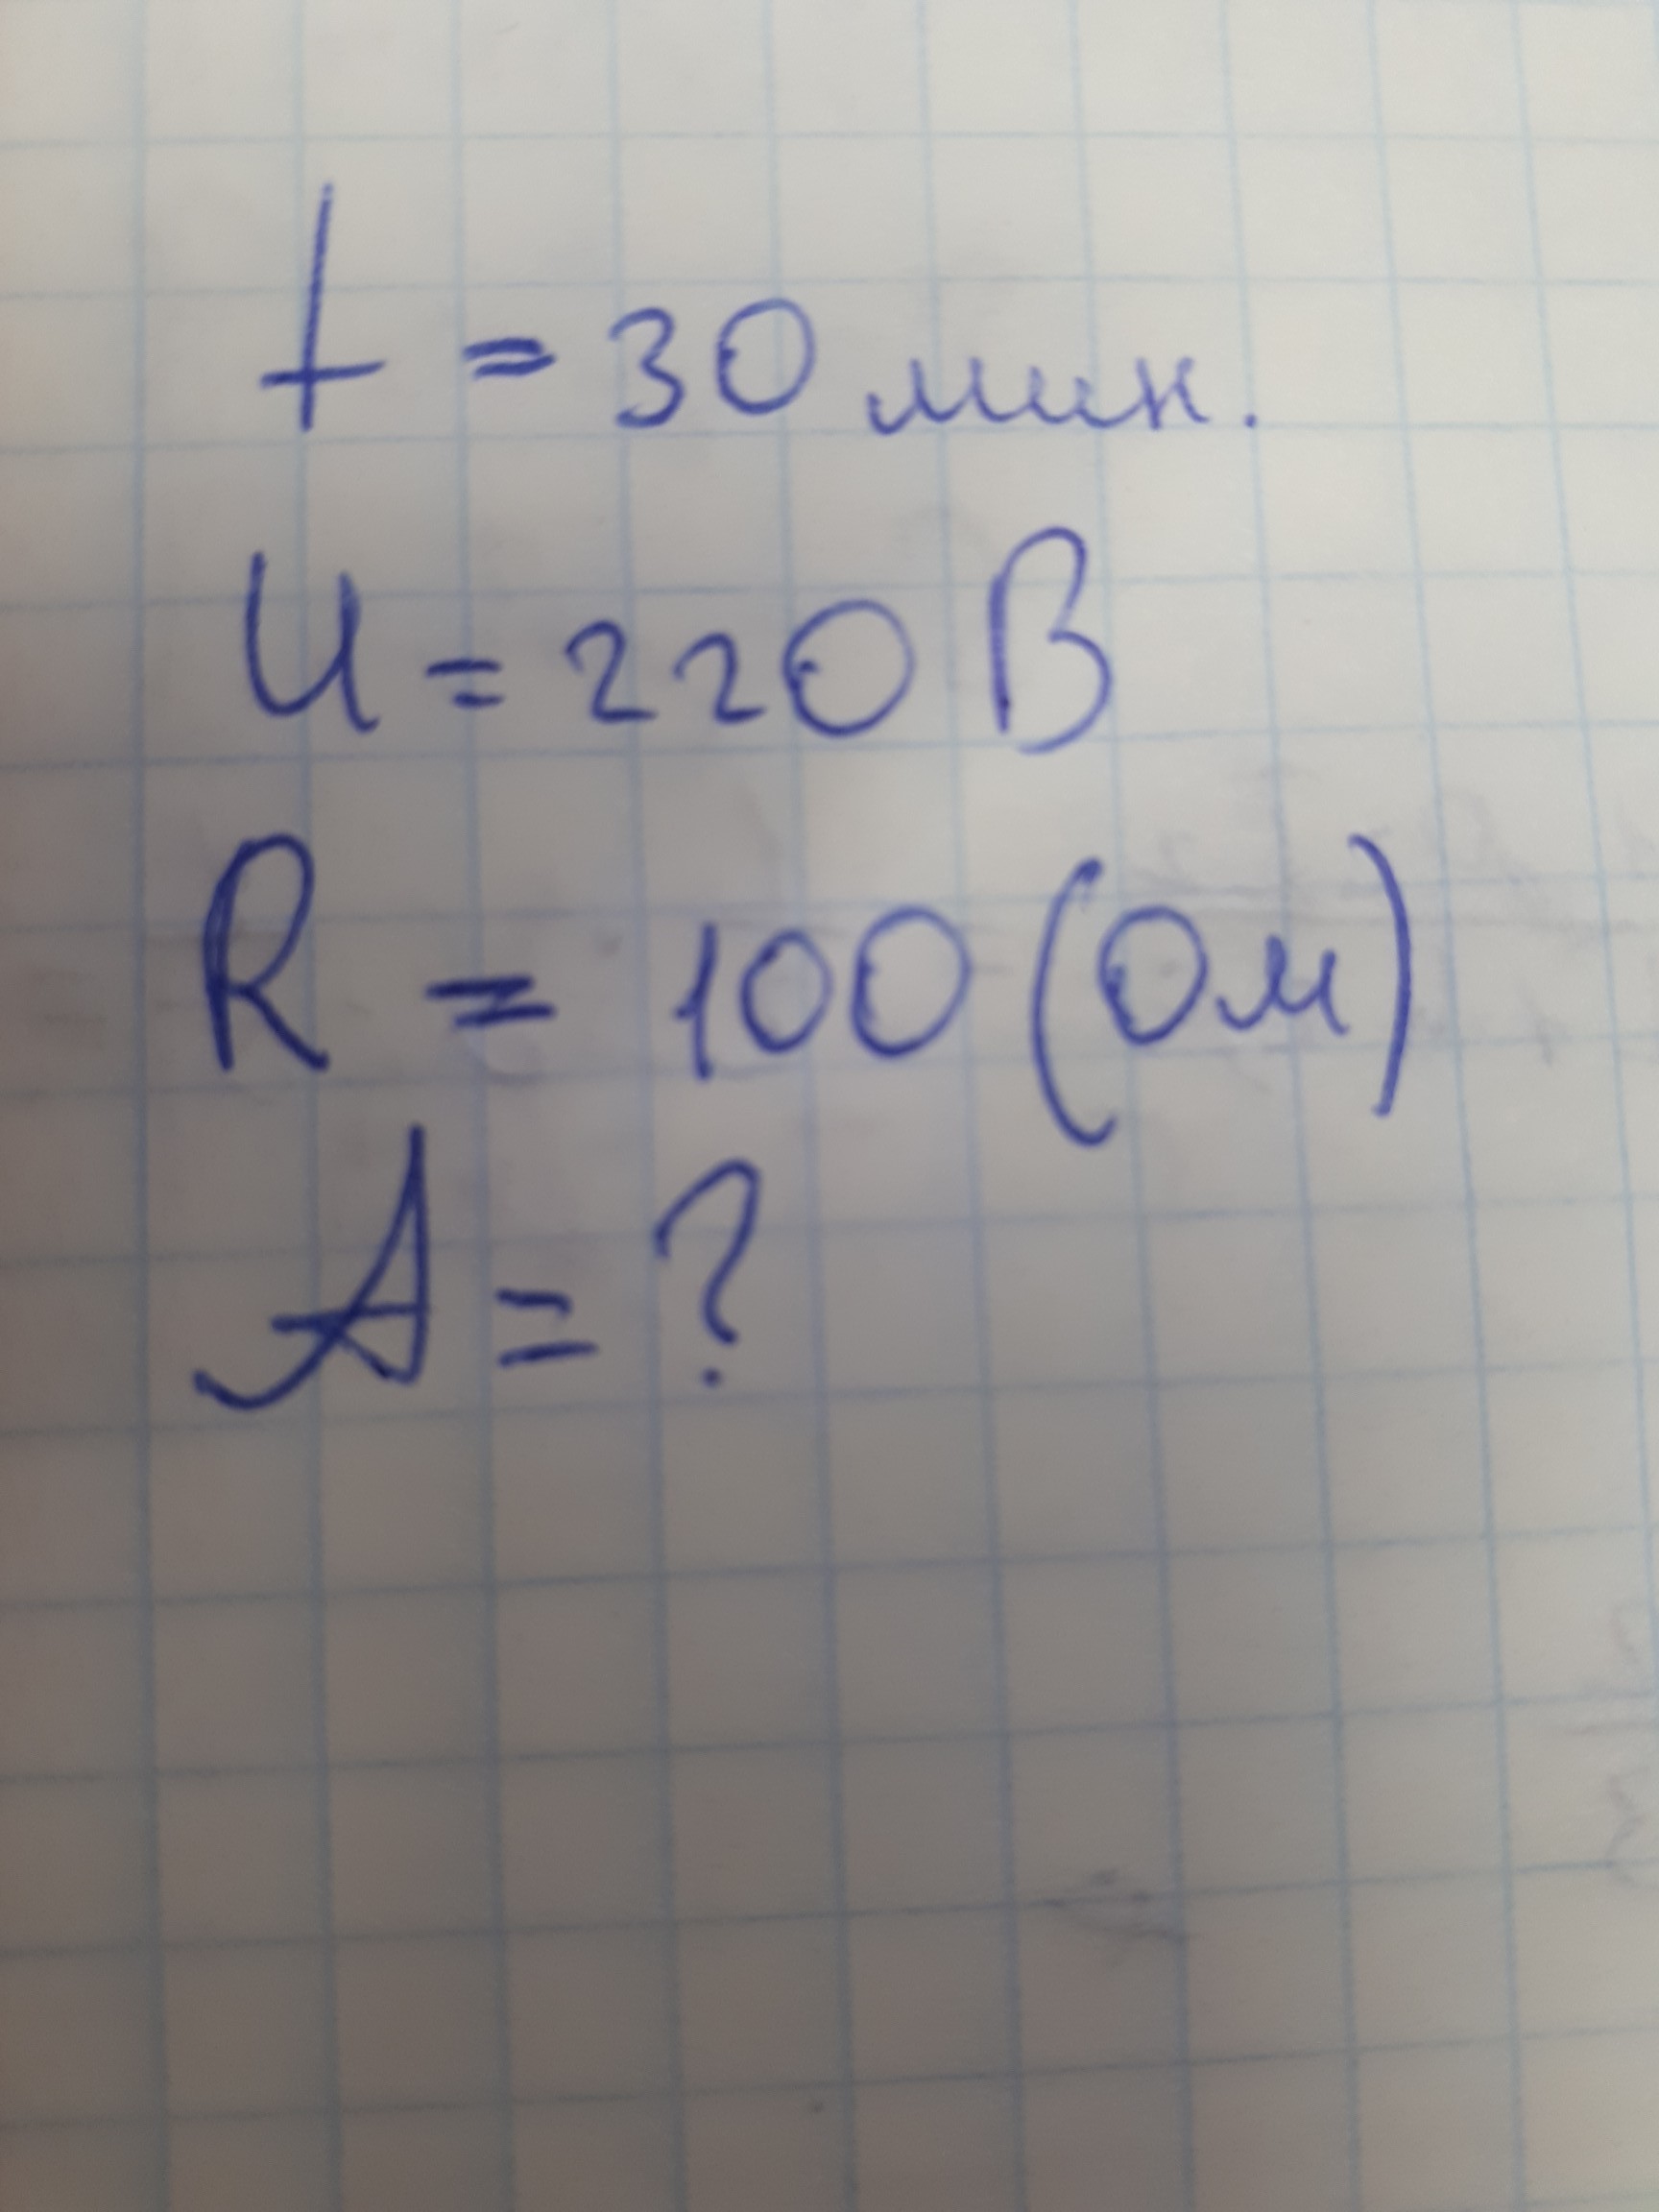 t = 30 мин.
U = 220 В
R = 100 (Ом)
A = ?